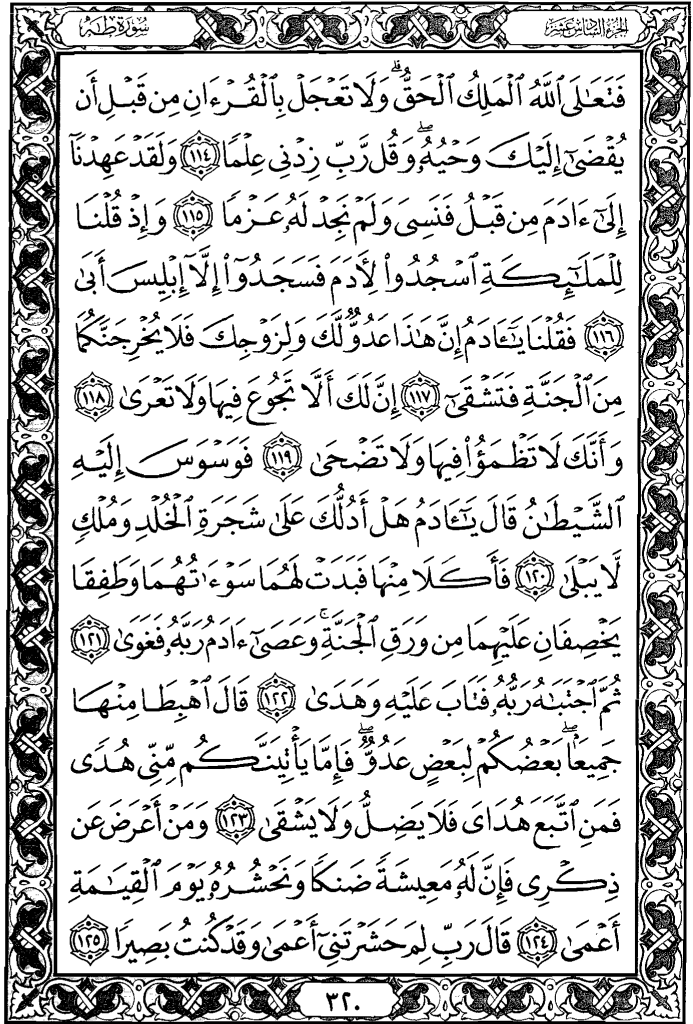 الجزء السادس عشر
سورة طه
فَتَعَٰلَى ٱللَّهُ ٱلْمَلِكُ ٱلْحَقُّ ۗ وَلَا تَعْجَلْ بِٱلْقُرْءَانِ مِن قَبْلِ أَن
يُقْضَىٰٓ إِلَيْكَ وَحْيُهُۥ ۖ وَقُل رَّبِّ زِدْنِى عِلْمًا ١١٤ وَلَقَدْ عَهِدْنَآ
إِلَىٰٓ ءَادَمَ مِن قَبْلُ فَنَسِىَ وَلَمْ نَجِدْ لَهُۥ عَزْمًا ١١٥ وَإِذْ قُلْنَا
لِلْمَلَٰٓئِكَةِ ٱسْجُدُوا۟ لِأَدَمَ فَسَجَدُوٓا۟ إِلَّآ إِبْلِيسَ أَبَىٰ
١١٦ فَقُلْنَا يَٰٓـَٔادَمُ إِنَّ هَٰذَا عَدُوٌّ لَّكَ وَلِزَوْجِكَ فَلَا يُخْرِجَنَّكُمَا
مِنَ ٱلْجَنَّةِ فَتَشْقَىٰٓ ١١٧ إِنَّ لَكَ أَلَّا تَجُوعَ فِيهَا وَلَا تَعْرَىٰ ١١٨
وَأَنَّكَ لَا تَظْمَؤُا۟ فِيهَا وَلَا تَضْحَىٰ ١١٩ فَوَسْوَسَ إِلَيْهِ
ٱلشَّيْطَٰنُ قَالَ يَٰٓـَٔادَمُ هَلْ أَدُلُّكَ عَلَىٰ شَجَرَةِ ٱلْخُلْدِ وَمُلْكٍ
لَّا يَبْلَىٰ ١٢٠ فَأَكَلَا مِنْهَا فَبَدَتْ لَهُمَا سَوْءَٰتُهُمَا وَطَفِقَا
يَخْصِفَانِ عَلَيْهِمَا مِن وَرَقِ ٱلْجَنَّةِ ۚ وَعَصَىٰٓ ءَادَمُ رَبَّهُۥ فَغَوَىٰ ١٢١
ثُمَّ ٱجْتَبَٰهُ رَبُّهُۥ فَتَابَ عَلَيْهِ وَهَدَىٰ ١٢٢ قَالَ ٱهْبِطَا مِنْهَا
جَمِيعًۢا ۖ بَعْضُكُمْ لِبَعْضٍ عَدُوٌّ ۖ فَإِمَّا يَأْتِيَنَّكُم مِّنِّى هُدًى
فَمَنِ ٱتَّبَعَ هُدَاىَ فَلَا يَضِلُّ وَلَا يَشْقَىٰ ١٢٣ وَمَنْ أَعْرَضَ عَن
ذِكْرِى فَإِنَّ لَهُۥ مَعِيشَةً ضَنكًا وَنَحْشُرُهُۥ يَوْمَ ٱلْقِيَٰمَةِ
أَعْمَىٰ ١٢٤ قَالَ رَبِّ لِمَ حَشَرْتَنِىٓ أَعْمَىٰ وَقَدْ كُنتُ بَصِيرًا ١٢٥
٣٢٠